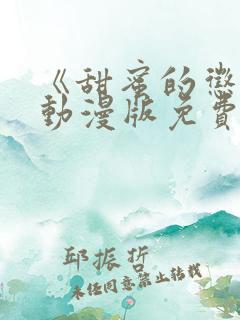 《甜蜜的懲
動漫版免費
邱振哲
未经同意禁止转载